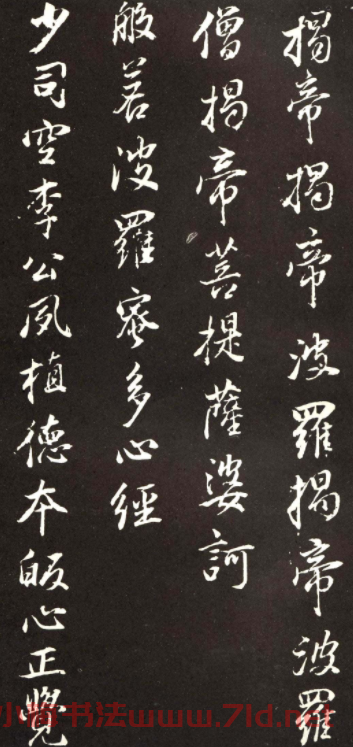 揭帝揭帝波羅揭帝波羅
僧揭帝菩提薩婆訶
般若波羅蜜多心經
少司空李公夙植德本皈心正覺
小楷书法www.7ld.net